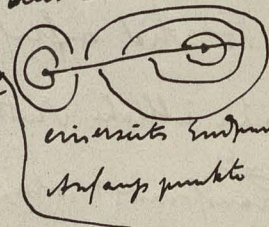 einerseits Endpun
Anfangspunkte